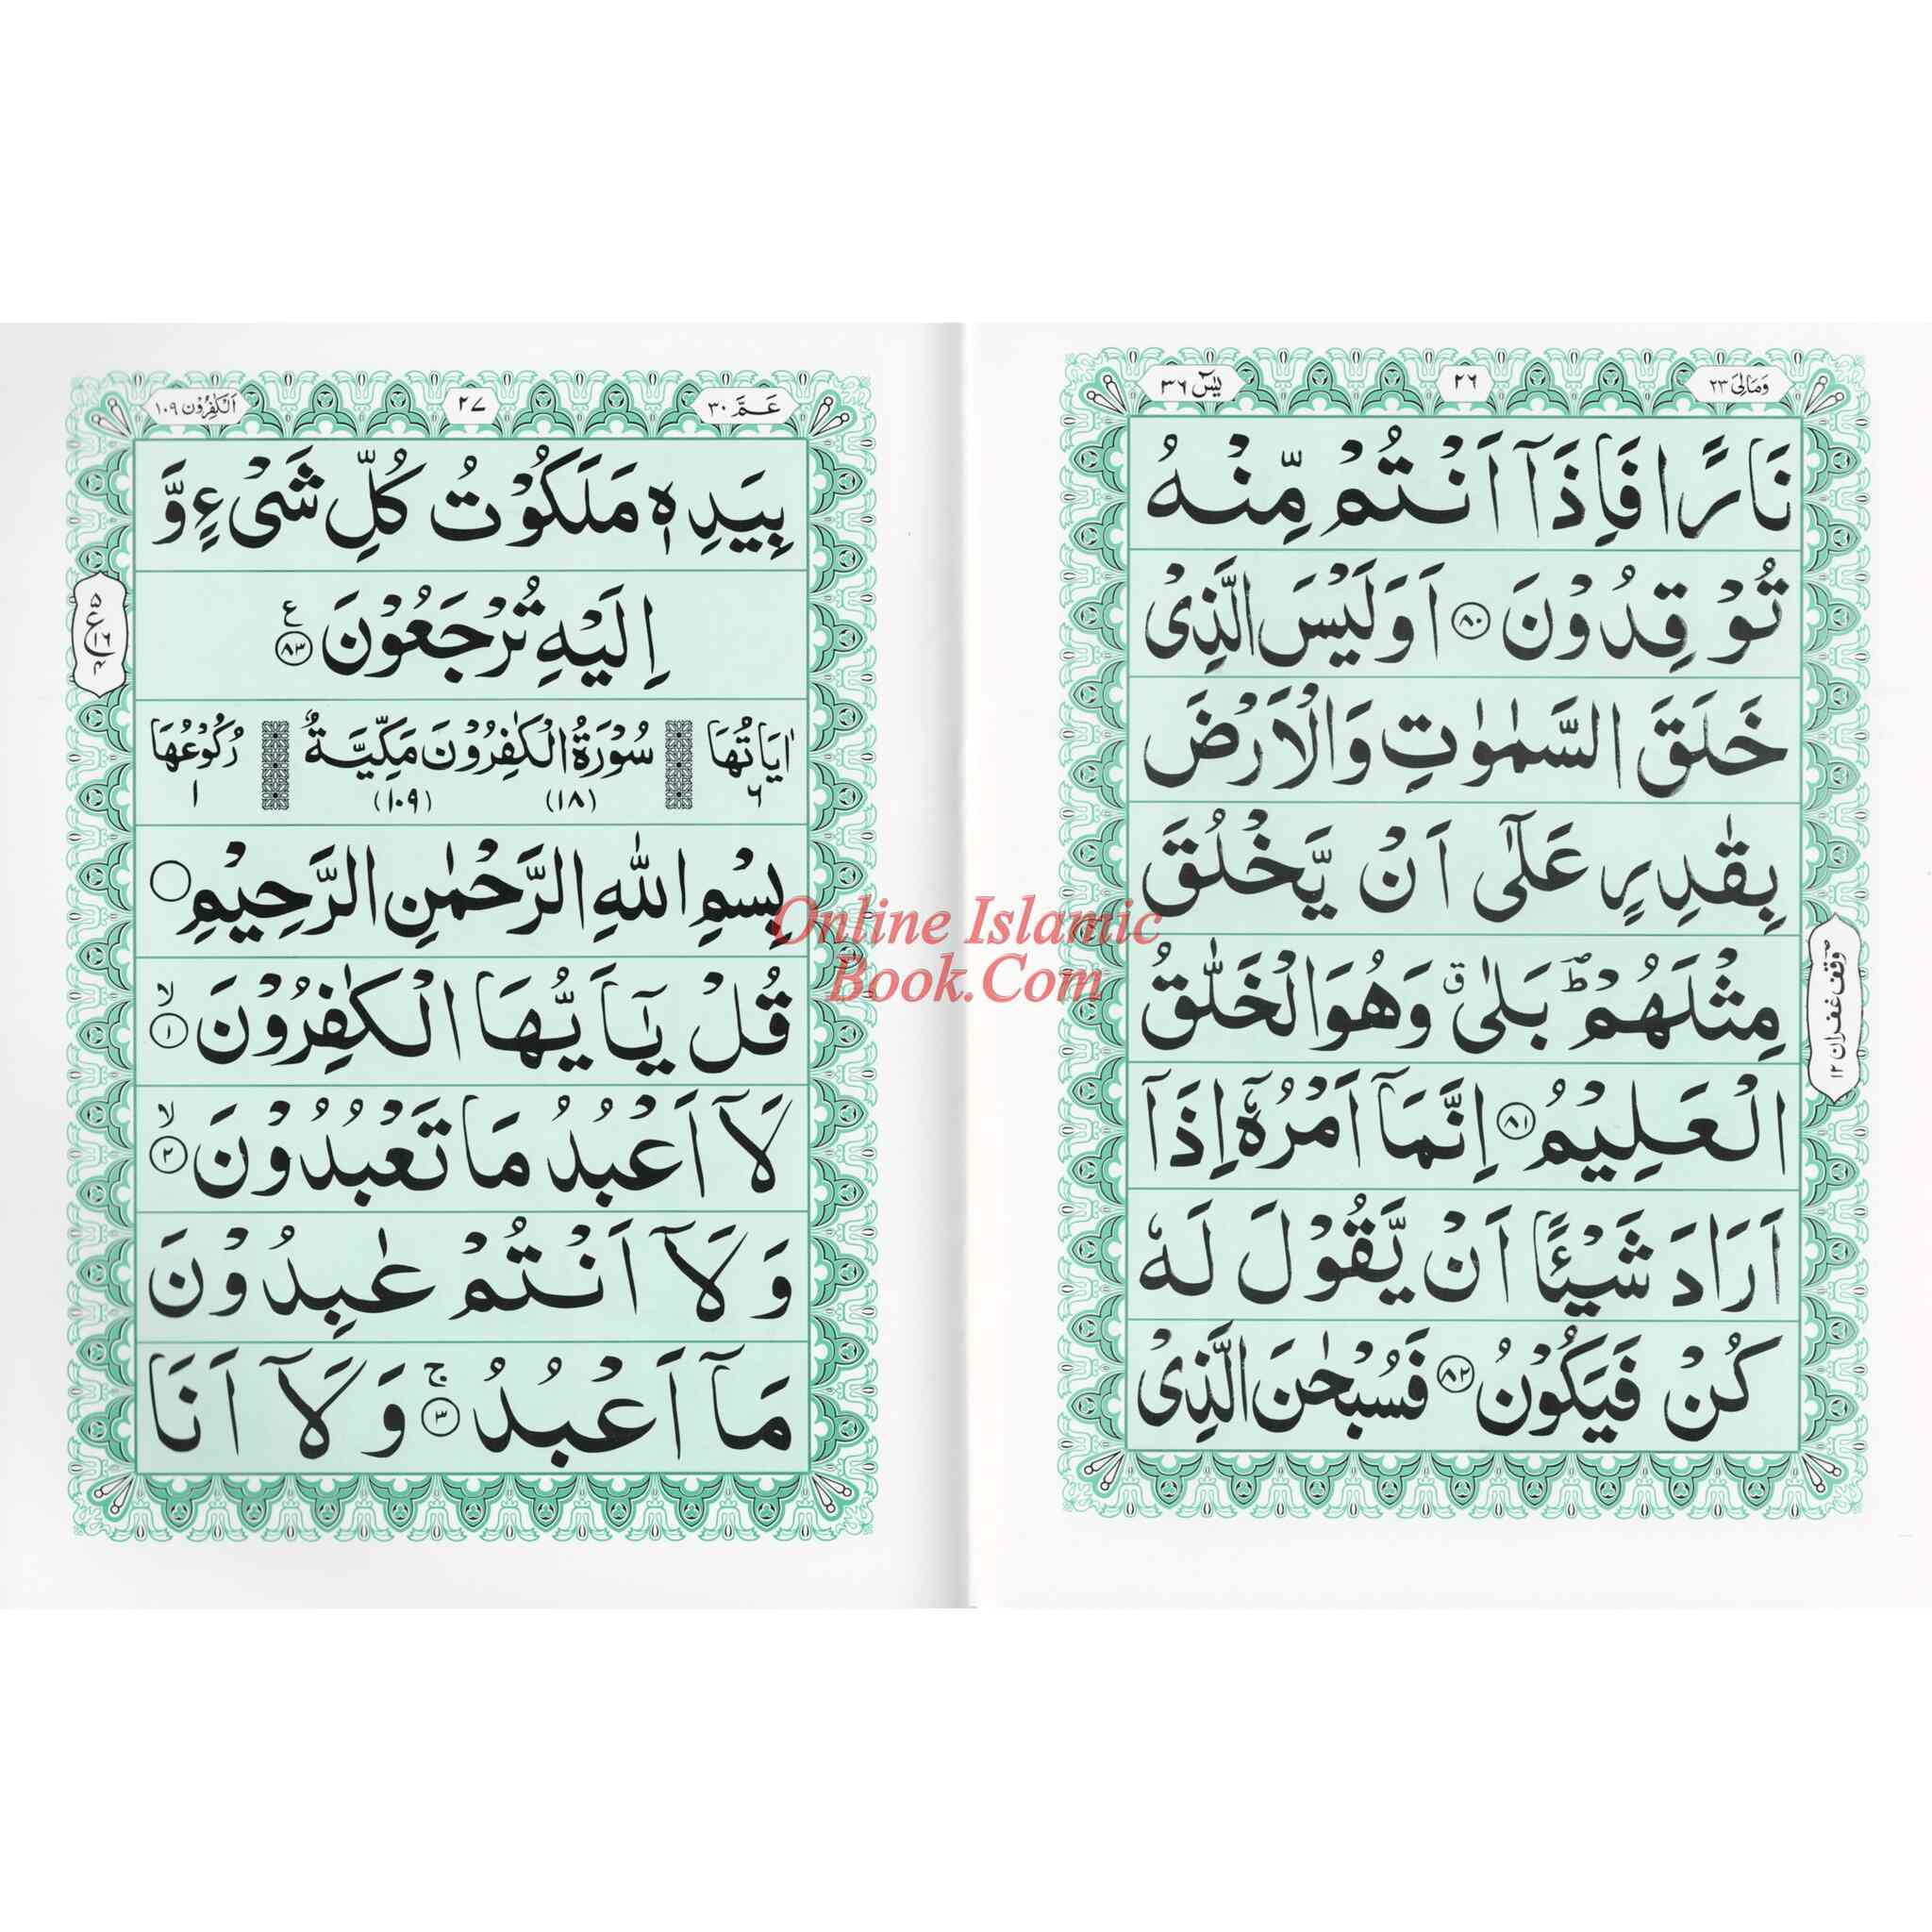 وَمَالِیَ ٢٣
٢٦
یٰسٓ ٣٦
نَارًا فَاِذَاۤ اَنْتُمْ مِّنْهُ
تُوْقِدُوْنَ ٨٠ اَوَلَیْسَ الَّذِیْ
خَلَقَ السَّمٰوٰتِ وَالْاَرْضَ
بِقٰدِرٍ عَلٰۤی اَنْ یَّخْلُقَ
مِثْلَهُمْ ؕ بَلٰی ۗ وَهُوَ الْخَلّٰقُ
الْعَلِیْمُ ٨١ اِنَّمَاۤ اَمْرُهٗۤ اِذَاۤ
اَرَادَ شَیْـًٔا اَنْ یَّقُوْلَ لَهٗ
كُنْ فَیَكُوْنُ ٨٢ فَسُبْحٰنَ الَّذِیْ
وقف غفران ١٢
عَمَّ ٣٠
٢٧
اَلْكٰفِرُوْن ١٠٩
بِیَدِهٖ مَلَكُوْتُ كُلِّ شَیْءٍ وَّ
اِلَیْهِ تُرْجَعُوْنَ ٨٣ ع
٥
ع ١٦
٤
اٰیَاتُهَا ٦ سُوْرَةُ الْكٰفِرُوْنَ مَكِّیَّةٌ رُكُوْعُهَا ١
(١٨) (١٠٩)
بِسْمِ اللّٰهِ الرَّحْمٰنِ الرَّحِیْمِ
قُلْ یٰۤاَیُّهَا الْكٰفِرُوْنَ ۙ ١
لَاۤ اَعْبُدُ مَا تَعْبُدُوْنَ ۙ ٢
وَلَاۤ اَنْتُمْ عٰبِدُوْنَ
مَاۤ اَعْبُدُ ۚ ٣ وَلَاۤ اَنَا
Online Islamic
Book.Com